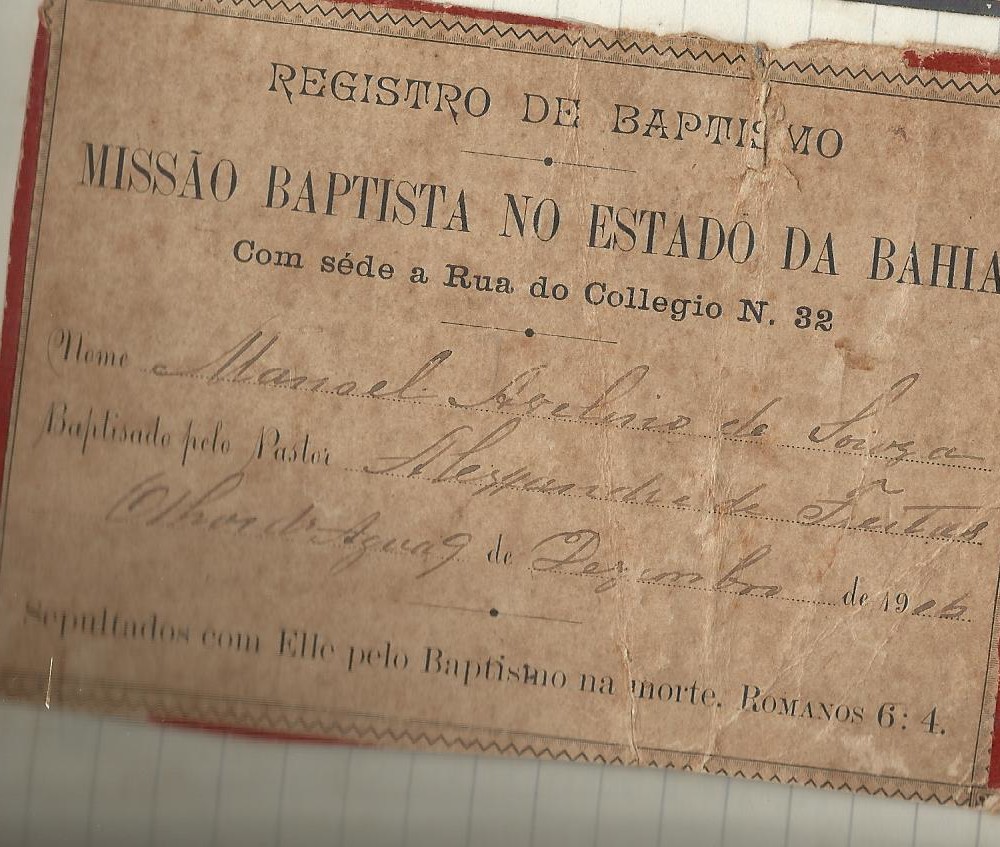 REGISTRO DE BAPTISMO
MISSÃO BAPTISTA NO ESTADO DA BAHIA
Com séde a Rua do Collegio N. 32
Nome Manoel Avelino de Souza
Baptisado pelo Pastor Alexandre de Freitas
Olhos de Agua 9 de Dezembro de 1906
Sepultados com Elle pelo Baptismo na morte. ROMANOS 6: 4.